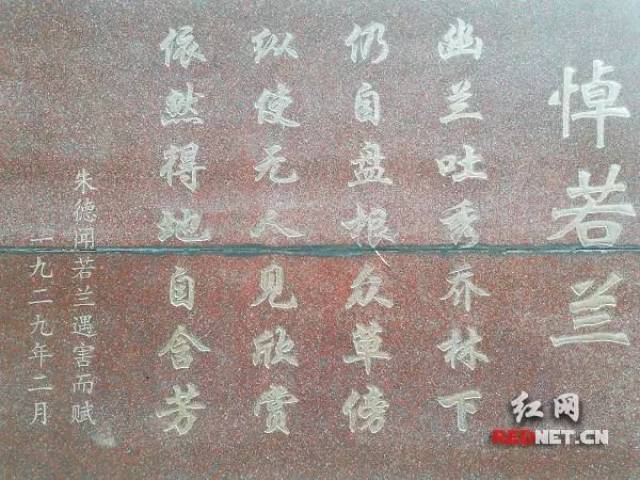 悼若兰
幽兰吐秀乔林下
仍自盘根众草傍
纵使无人见欣赏
依然得地自含芳
朱德闻若兰遇害而赋
一九二九年二月
红网
REDNET.CN